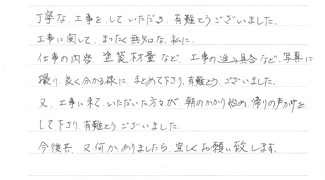 丁寧な工事をしていただき、有難とうございました。
工事に関して、まったく無知な、私に、
仕事の内容 塗装材量など、工事の進み具合など、写真に
撮り 良く分かる様に、まとめて下さり、有難とう、ございました。
又、工事に来て、いただいた方々が 朝のかかり始め、帰りの声かけを
して下さり、有難とう、ございました。
今後共、又何かありましたら、宜しくお願い致します。